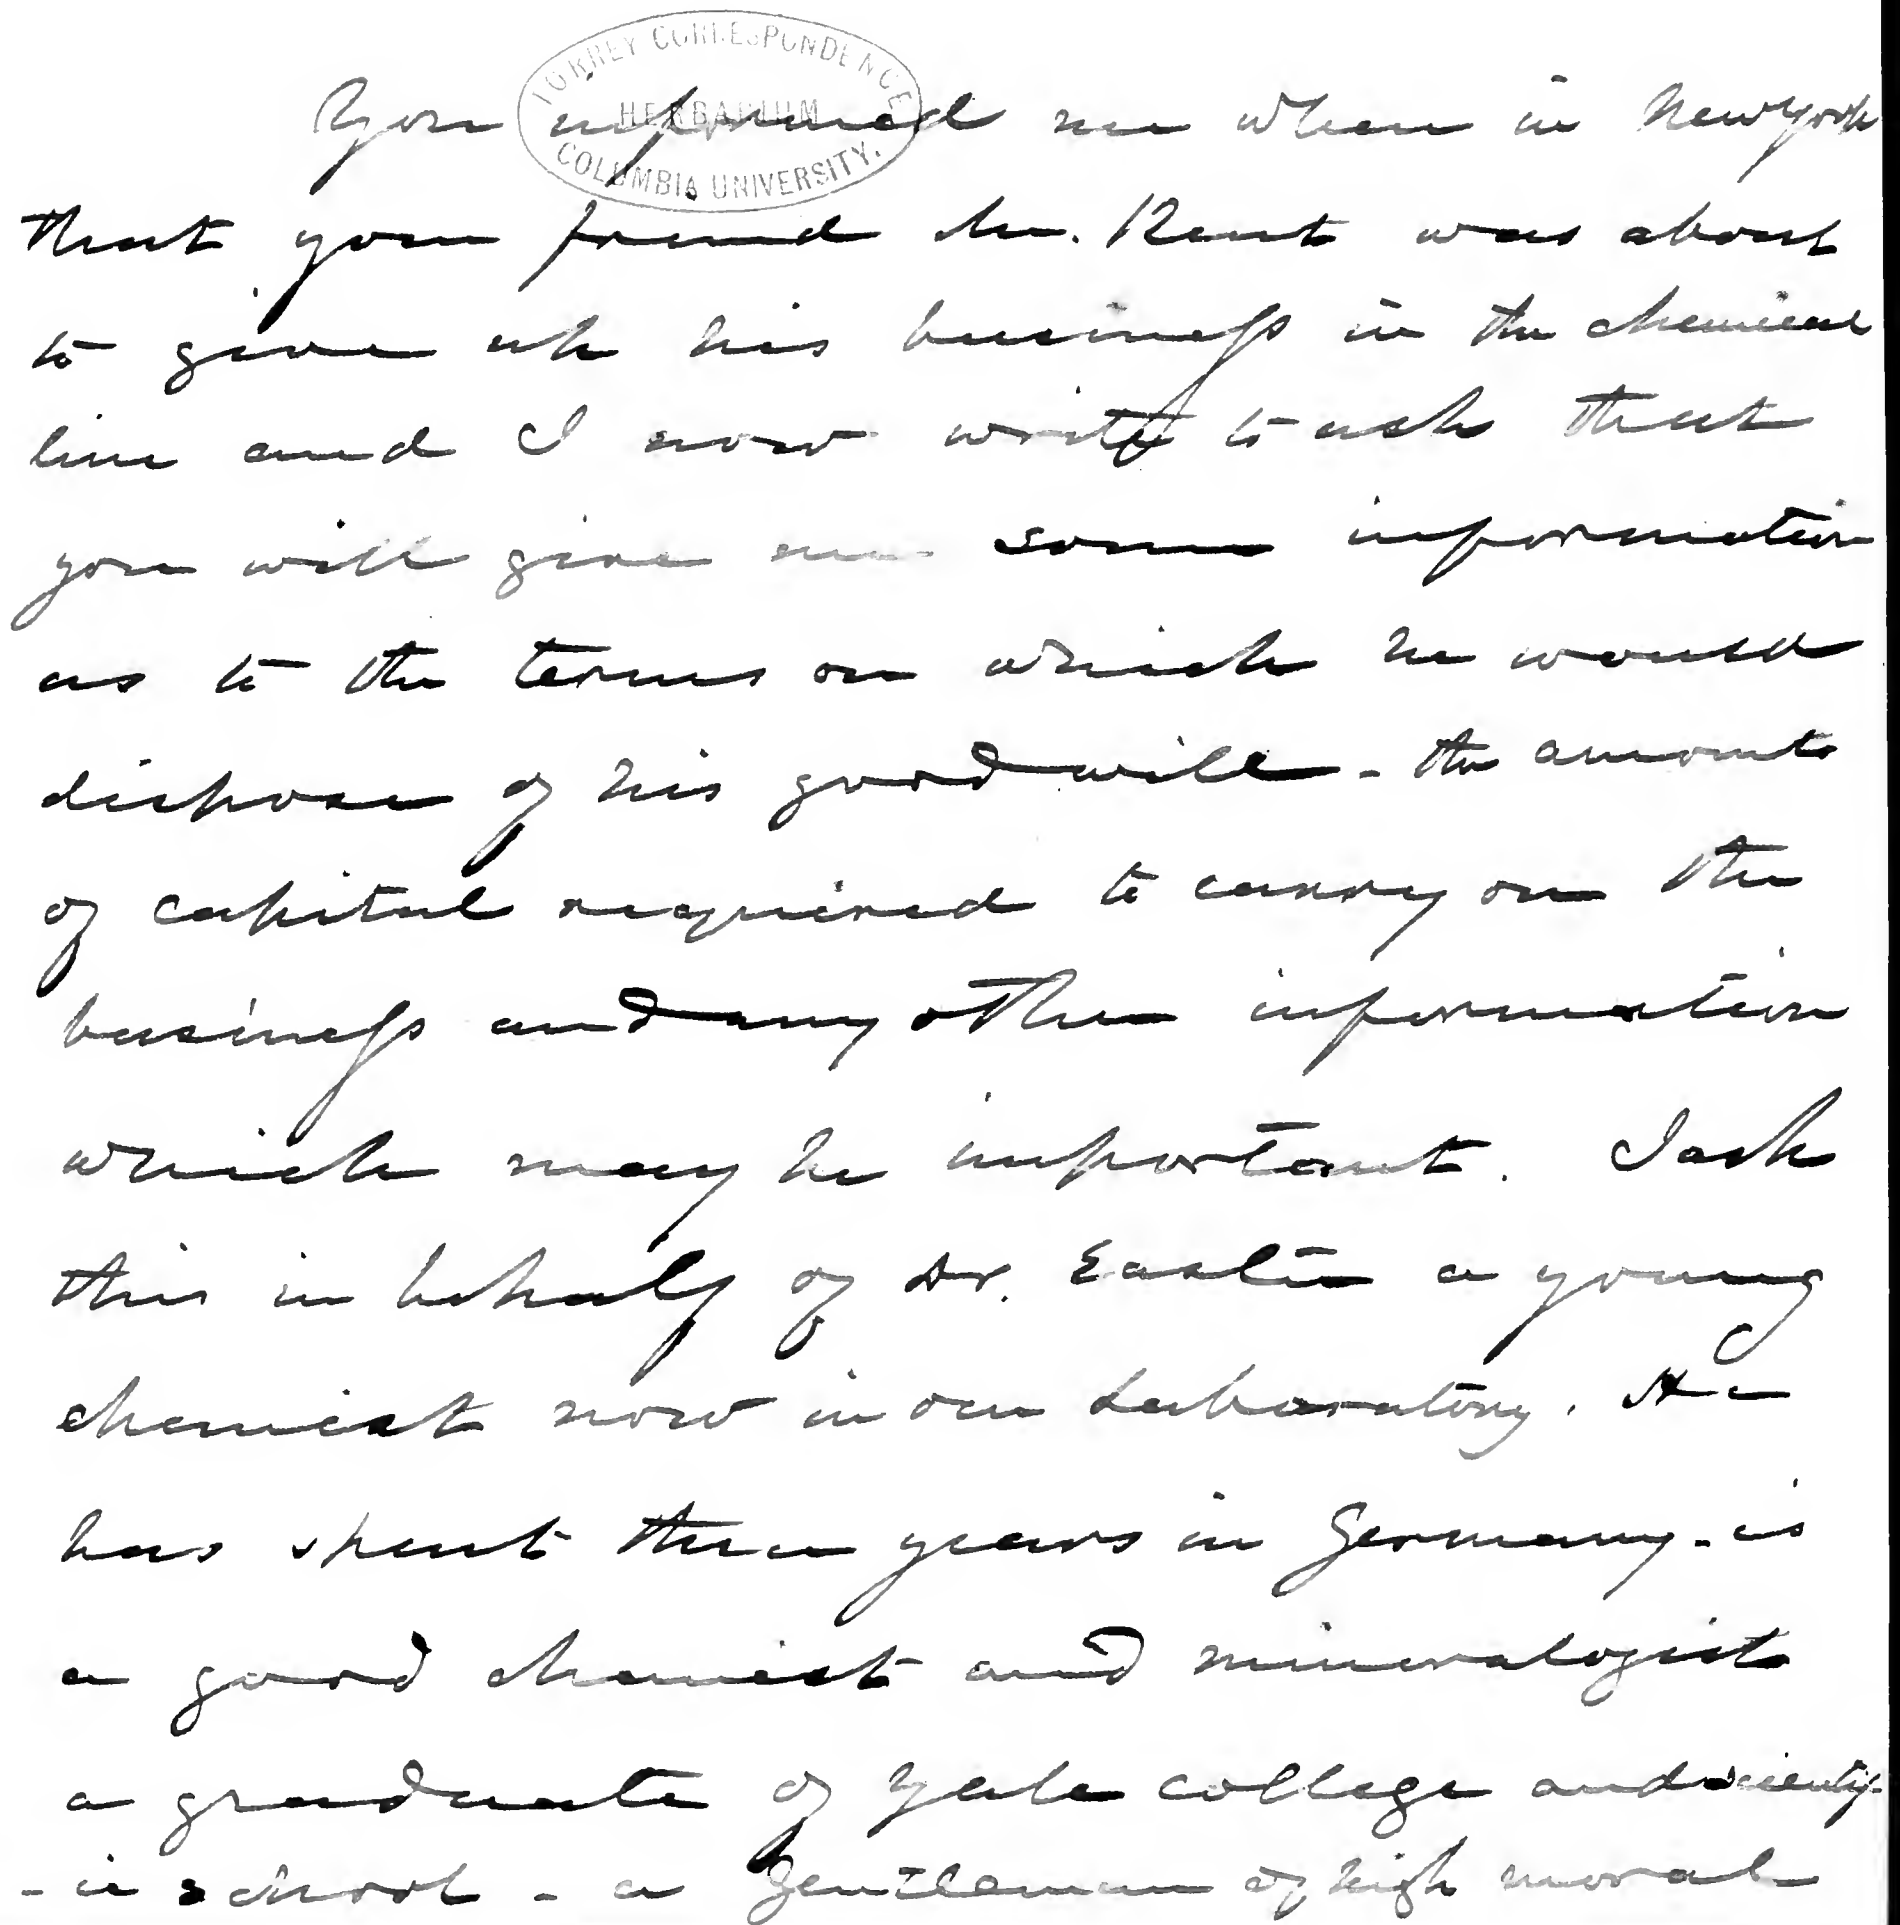 TORREY CORRESPONDENCE
HERBARIUM
COLUMBIA UNIVERSITY.
You informed me when in New York
that your friend Mr. Kent was about
to give up his business in the chemical
line and I now write to ask that
you will give me some information
as to the terms on which he would
dispose of his good will - the amount
of capital required to carry on the
business and any other information
which may be important. I ask
this in behalf of Dr. Easter a young
chemist now in our Laboratory. He
has spent three years in Germany - is
a good chemist and mineralogist
a graduate of Yale college and scientif-
-ic school - a gentleman of high moral